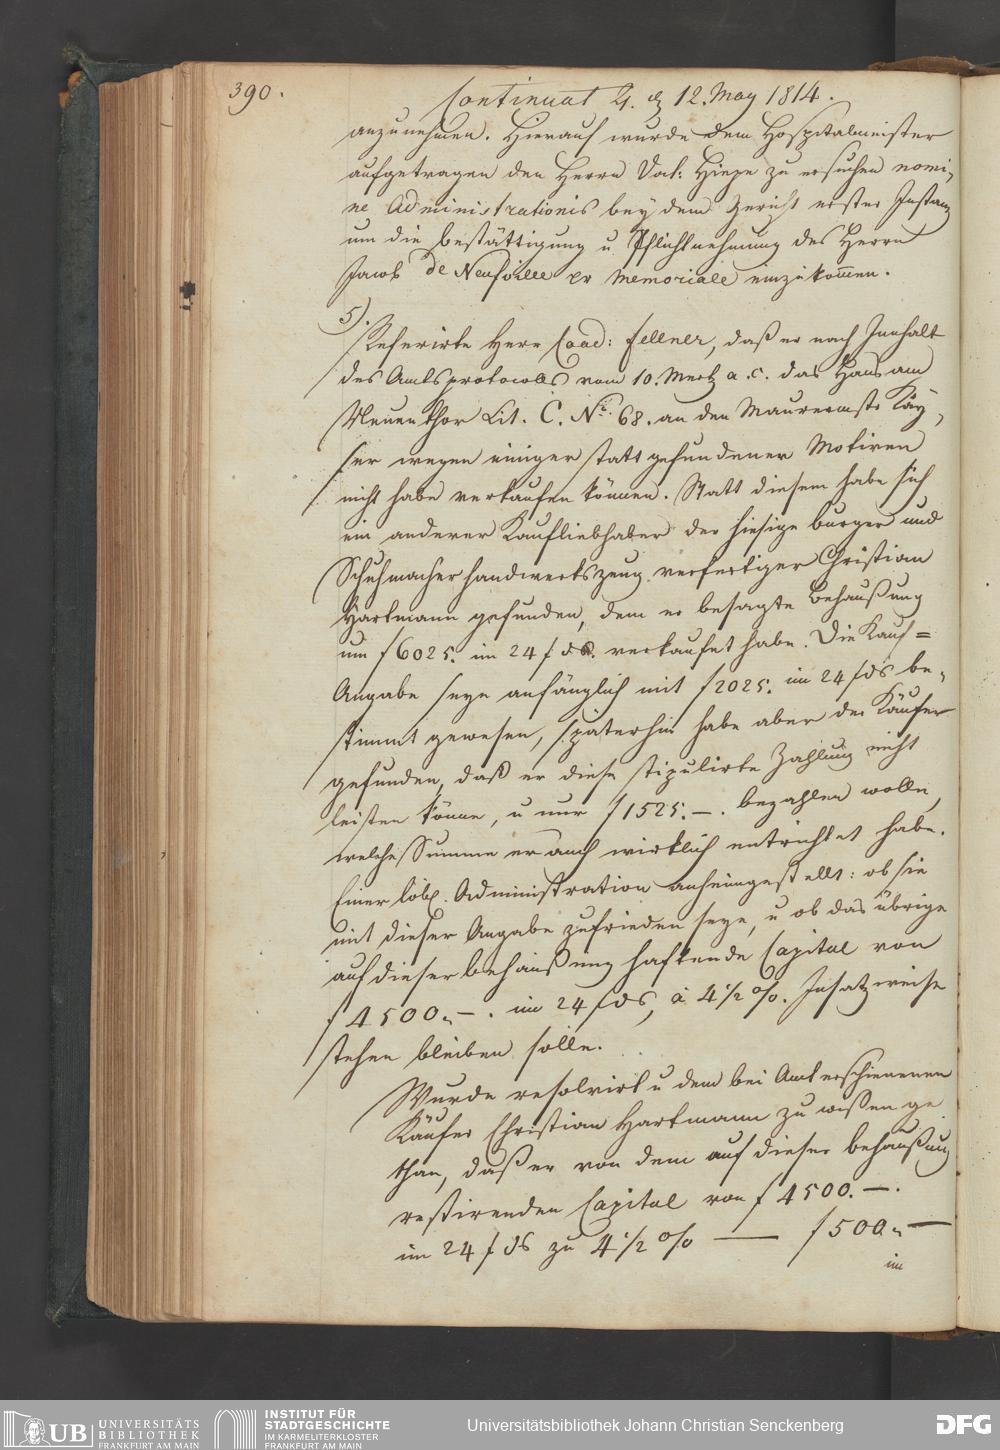 390.
Continuat ♃. d 12. May 1814.
anzunehmen. Hierauf wurde dem Hospitalmeister
aufgetragen den Herrn Doct: Hiepe zu ersuchen nomi-
ne Administrationis bey dem Gericht erster Instanz
um die Bestättigung u Pflichtnehmung des Herrn
Jacob de Neufville pr Memoriale einzukom̄en.
5).
Referirte Herr Coad: Fellner, daß er nach Innhalt
des Amtsprotocolls vom 10. Mertz a. c. das Haus am
Neuenthor Lit. C. No. 68. an den Maurermstr Käy-
ser wegen einiger statt gefundener Motiven
nicht habe verkaufen können. Statt diesem habe sich
ein anderer Kaufliebhaber der hiesige burger und
Schuhmacherhandwerkszeug verfertiger Christian
Hartmann gefunden, dem er besagte Behaußung
um f 6025. im 24 f ds. verkaufet habe. Die Kauf=
Angabe seye anfänglich mit f 2025. im 24 f ds be-
stimmt gewesen, späterhin habe aber der Käufer
gefunden, daß er diese stipulirte Zahlung nicht
leisten könne, u nur f 1525. —. bezahlen wolle,
welche Summe er auch wirklich entrichtet habe.
Einer löbl. Administration anheimgestellt: ob sie
mit dieser Angabe zufrieden seye, u ob das übrige
auf dieser behaußung haftende Capital von
f 4500. —. im 24 f ds, à 4 1/2 %. Insatzweise
stehen bleiben solle.
Wurde resolvirt u dem bei Amt erschienenen
Käufer Christian Hartmann zu wißen ge
than, daß er von dem auf dieser behaußung
restirenden Capital von f 4500. —.
im 24 f ds zu 4 1/2 % — f 500. —
im
UB UNIVERSITÄTS
BIBLIOTHEK
FRANKFURT AM MAIN
INSTITUT FÜR
STADTGESCHICHTE
IM KARMELITERKLOSTER
FRANKFURT AM MAIN
Universitätsbibliothek Johann Christian Senckenberg
DFG